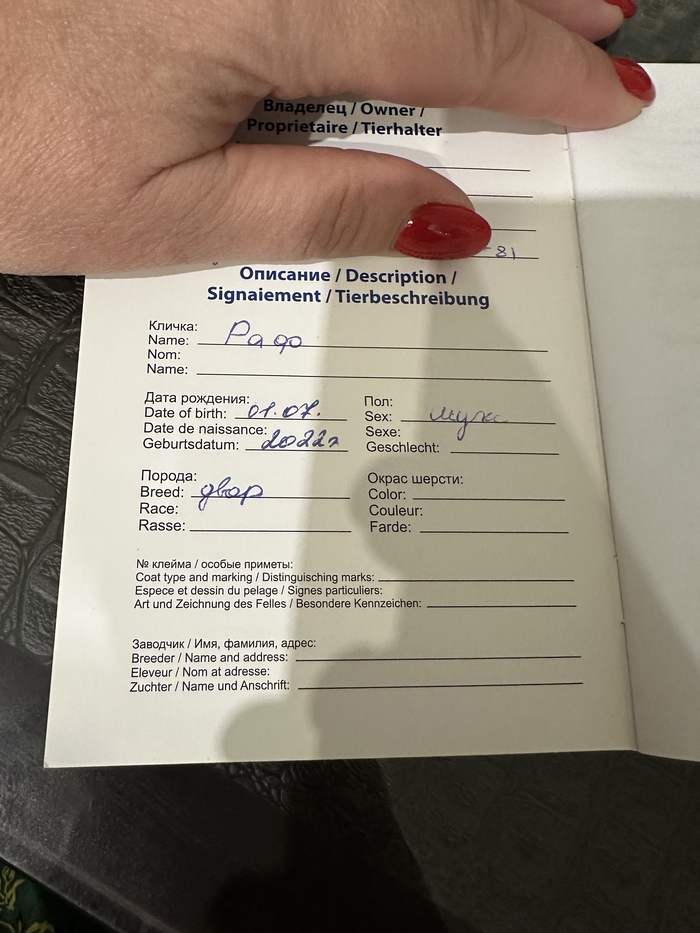 Владелец / Owner /
Proprietaire / Tierhalter
-81
Описание / Description /
Signaiement / Tierbeschreibung
Кличка:
Name: Радо
Nom:
Name:
Дата рождения:
Date of birth: 01.07.
Date de naissance:
Geburtsdatum: 2022г
Пол:
Sex: муж
Sexe:
Geschlecht:
Порода:
Breed: двор
Race:
Rasse:
Окрас шерсти:
Color:
Couleur:
Farde:
№ клейма / особые приметы:
Coat type and marking / Distinguisching marks:
Espece et dessin du pelage / Signes particuliers:
Art und Zeichnung des Felles / Besondere Kennzeichen:
Заводчик / Имя, фамилия, адрес:
Breeder / Name and address:
Eleveur / Nom at adresse:
Zuchter / Name und Anschrift: